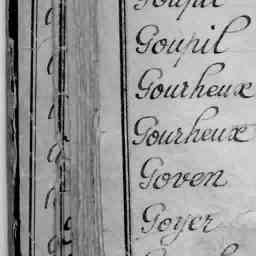 Goupil
Goupil
Gourheux
Gourheux
Goven
Goyer